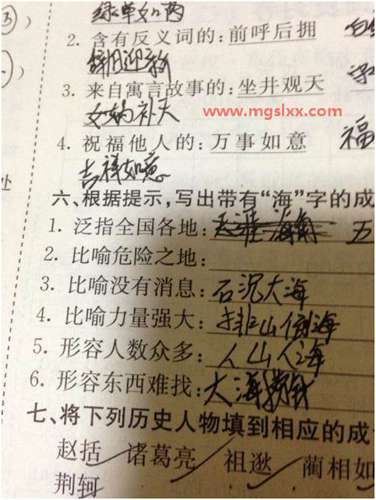 2. 含有反义词的:前呼后拥
辞旧迎新
3. 来自寓言故事的:坐井观天
www.mgslxx.com
女娲补天
4. 祝福他人的:万事如意 福
吉祥如意
处
六、根据提示,写出带有“海”字的成
1. 泛指全国各地:天涯海角 五
2. 比喻危险之地:
3. 比喻没有消息:石沉大海
4. 比喻力量强大:排山倒海
5. 形容人数众多:人山人海
6. 形容东西难找:大海捞针
七、将下列历史人物填到相应的成
赵括 诸葛亮 祖逖 蔺相如
荆轲